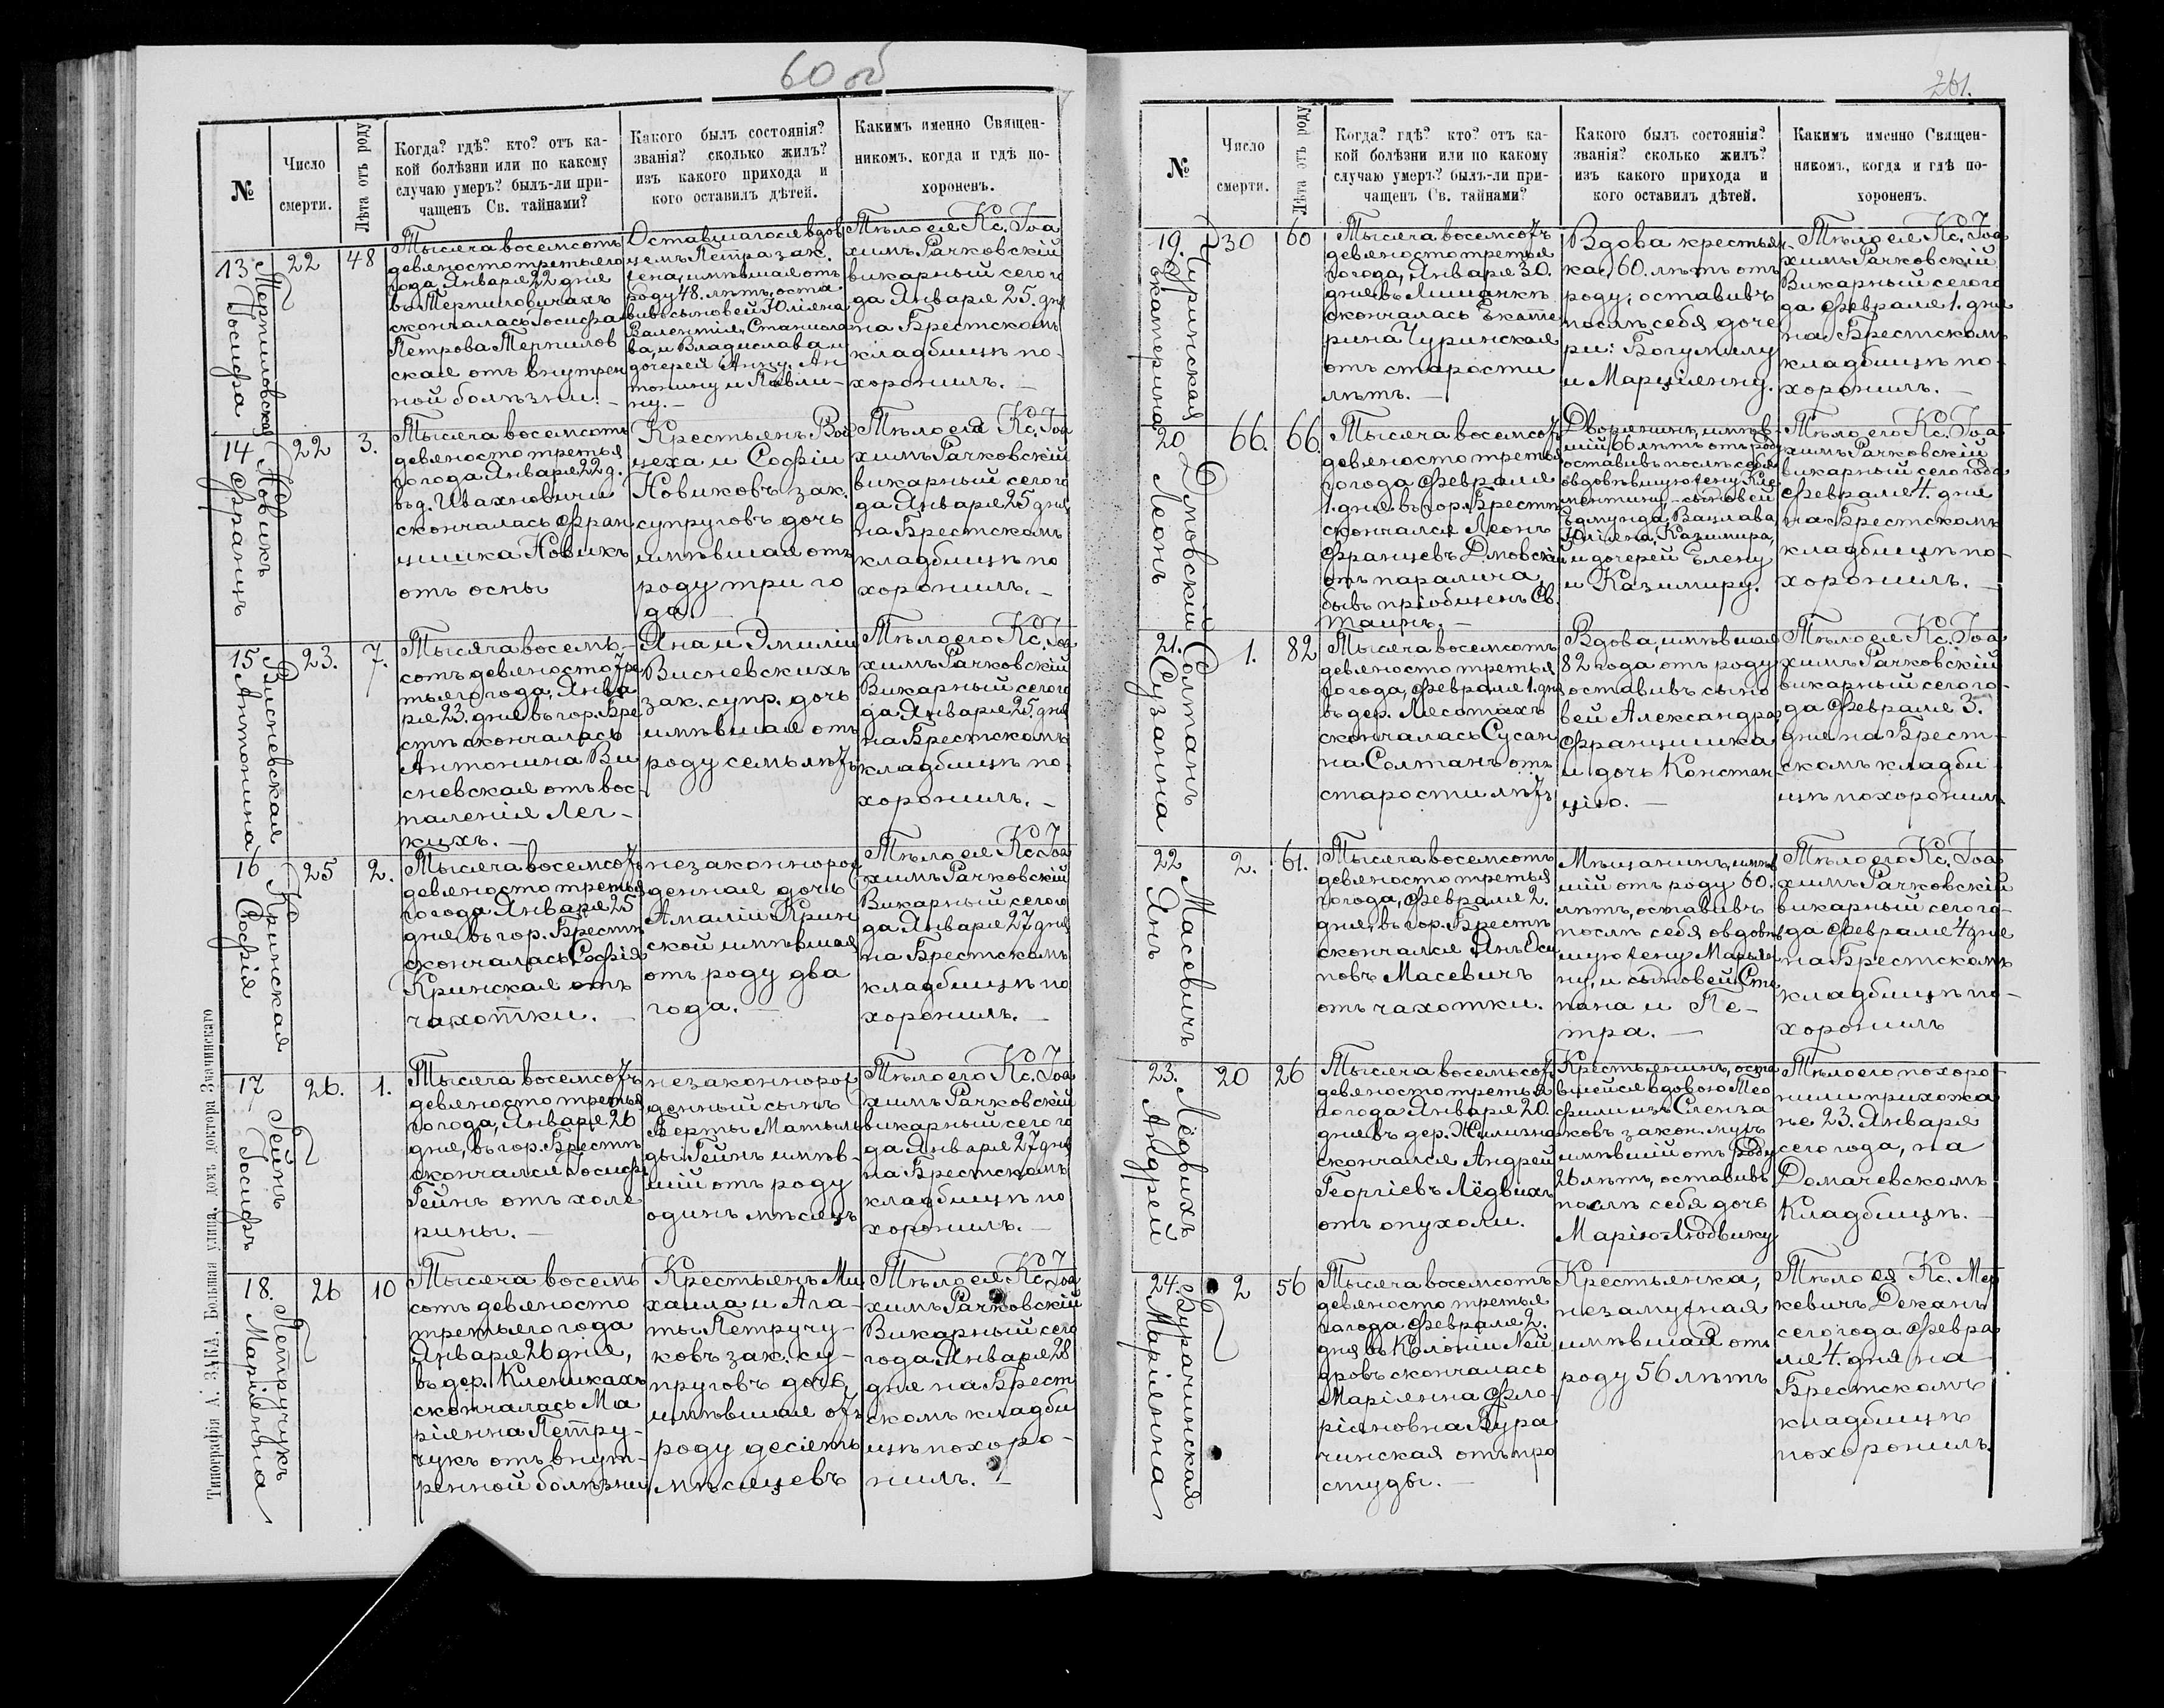 60 об
№
Число
смерти.
Лѣта отъ роду
Когда? гдѣ? кто? отъ ка-
кой болѣзни или по какому
случаю умеръ? былъ-ли при-
чащенъ Св. тайнами?
Какого былъ состоянія?
званія? сколько жилъ?
изъ какого прихода и
кого оставилъ дѣтей.
Какимъ именно Священ-
никомъ, когда и гдѣ по-
хороненъ.
13
Терпиловская
Іосифа
22
48
Тысяча восемсотъ
девяносто третьяго
года, Января 22 дня
въ Терпиловичахъ
скончалась Іосифа
Петрова Терпилов
ская отъ внутрен
ной болѣзни. –
Оставшагося вдов
цемъ Петра зак.
жена, имѣвшая отъ
роду 48. лѣтъ, оста
вивъ сыновей Юліана
Валентія, Станисла
ва, и Владислава и
дочерей Анну, Ан
тонину и Павли-
ну. –
Тѣло ея Кс. Іоа
химъ Рачковскій
викарный сего го
да Января 25. дня
на Брестскомъ
кладбищѣ по-
хоронилъ. –
14
Новикъ
Францъ
22
3.
Тысяча восемсотъ
девяносто третья
го года Января 22 д.
въ д. Ивахновичи
скончалась Фран
цишка Новикъ
отъ оспы
Крестьянъ Вой
цеха и Софіи
Новиковъ зак.
супруговъ дочь
имѣвшая отъ
роду три го
да. –
Тѣло ея Кс. Іоа
химъ Рачковскій
викарный сего го
да Января 25 дня
на Брестскомъ
кладбищѣ по
хоронилъ. –
15
Висневская
Антонина
23.
7.
Тысяча восемь-
сотъ девяносто тре
тьяго года, Янва
ря 23. дня въ гор. Бре
стѣ скончалась
Антонина Ви
сневская отъ вос-
паленія Лег-
кихъ. –
Яна и Эмиліи
Висневскихъ
зак. супр. дочь
имѣвшая отъ
роду семь лѣтъ
Тѣло его Кс. Іоа
химъ Рачковскій
Викарный сего го
да Января 25. дня
на Брестскомъ
кладбищѣ по
хоронилъ. –
16
Кринская
Софія
25
2.
Тысяча восемсотъ
девяносто третья
го года Января 25
дня, въ гор. Брестѣ
скончалась Софія
Кринская отъ
чахотки. –
незаконнорож
денная дочь
Амаліи Крин
ской имѣвшая
отъ роду два
года. –
Тѣло ея Кс. Іоа
химъ Рачковскій
Викарный сего го
да Января 27 дня
на Брестскомъ
кладбищѣ по
хоронилъ. –
17
Гейнъ
Іосифъ
26.
1.
Тысяча восемсотъ
девяносто третья
го года, Января 26
дня, въ гор. Брестѣ
скончался Іосифъ
Гейнъ отъ холе
рины. –
незаконнорож
денный сынъ
Берты Матиль
ды Гейнъ имѣв-
шій отъ роду
одинъ мѣсяцъ
Тѣло его Кс. Іоа
химъ Рачковскій
викарный сего го
да Января 27 дня
на Брестскомъ
кладбищѣ по
хоронилъ. –
18.
Петручукъ
Маріянна
26
10
Тысяча восемь
сотъ девяносто
третьяго года
Января 26 дня,
въ дер. Клейникахъ
скончалась Ма
ріянна Петру-
чукъ отъ внут-
ренной болѣзни
Крестьянъ Ми
хаила и Ага-
ты Петручу-
ковъ зак. су-
пруговъ дочь,
имѣвшая отъ
роду десять
мѣсяцевъ
Тѣло ея Кс. Іоа
химъ Рачковскій
Викарный сего
года Января 28
дня на Брест
скомъ кладби
щѣ похоро-
нилъ. –
Типографія А. ЗАКА, Большая улица, домъ доктора Значинскаго
261.
№
Число
смерти.
Лѣта отъ роду
Когда? гдѣ? кто? отъ ка-
кой болѣзни или по какому
случаю умеръ? былъ-ли при-
чащенъ Св. тайнами?
Какого былъ состоянія?
званія? сколько жилъ?
изъ какого прихода и
кого оставилъ дѣтей.
Какимъ именно Священ-
никомъ, когда и гдѣ по-
хороненъ.
19.
Чуринская
Екатерина
30
60
Тысяча восемсотъ
девяносто третья
го года, Января 30.
дня въ Лишанкѣ
скончалась Екате
рина Чуринская
отъ старости
лѣтъ. –
Вдова крестьян
ка, 60. лѣтъ отъ
роду, оставивъ
послѣ себя доче
ри: Богумилу
и Марціянну.
Тѣло ея Кс. Іоа
химъ Рачковскій
Викарный сего го
да Февраля 1. дня
на Брестскомъ
кладбищѣ по-
хоронилъ. –
20
Дмовскій
Леонъ
66.
66.
Тысяча восемсотъ
девяносто третья
го года Февраля
1. дня въ гор. Брестѣ
скончался Леонъ
Францевъ Дмовскій
отъ паралича,
бывъ пріобщенъ Св.
таинъ. –
Дворянинъ, имѣв-
шій 66 лѣтъ отъ роду
оставивъ послѣ себя
овдовѣвшую жену Кле
ментину, – сыновей
Эдмунда, Вацлава,
Юліана, Казимира,
и дочерей Елену
и Казимиру.
Тѣло его Кс. Іоа
химъ Рачковскій
викарный сего года
Февраля 4. дня
на Брестскомъ
кладбищѣ по-
хоронилъ. –
21.
Солтанъ
Сузанна
1.
82
Тысяча восемсотъ
девяносто третья
го года, Февраля 1. дня
въ дер. Лясотахъ
скончалась Сусан
на Солтанъ отъ
старости лѣтъ
Вдова, имѣвшая
82 года отъ роду
оставивъ сыно
вей Александра
Францишка
и дочь Констан-
цію. –
Тѣло ея Кс. Іоа
химъ Рачковскій
викарный сего го-
да Февраля 3.
дня на Брест-
скомъ кладби
щѣ похоронилъ
22
Масевичъ
Янъ
2.
61.
Тысяча восемсотъ
девяносто третья
го года, Февраля 2.
дня, въ гор. Брестѣ
скончался Янъ Оси
повъ Масевичъ
отъ чахотки.
Мѣщанинъ, имѣв
шій отъ роду 60.
лѣтъ, оставивъ
послѣ себя овдовѣв
шую жену Марьян
ну, и сыновей Сте
пана и Пе-
тра. –
Тѣло его Кс. Іоа
химъ Рачковскій
викарный сего го-
да Февраля 4 дня
на Брестскомъ
кладбищѣ по-
хоронилъ
23.
Лёдвихъ
Андрей
20
26
Тысяча восемьсотъ
девяносто третья
го года Января 20.
дня въ дер. Жилизна
скончался Андрей
Георгіевъ Лёдвихъ
отъ опухоли.
Крестьянинъ, оста
вшейся вдовою Тео
филіи изъ Сленза
ковъ закон. мужъ
имѣвшій отъ роду
26 лѣтъ, оставивъ
послѣ себя дочь
Марію-Людвику
Тѣло его похоро-
нили прихожа
не 23. Января
сего года, на
Домачевскомъ
Кладбищѣ. –
24.
Вурачинская
Маріянна
2
56
Тысяча восемсотъ
девяносто третья
го года Февраля 2.
дня въ Колоніи Ней
дровъ скончалась
Маріянна Фло-
ріановна Вура
чинская отъ про
студы. –
Крестьянка,
незамужная
имѣвшая отъ
роду 56 лѣтъ
Тѣло ея Кс. Мер
кевичъ Деканъ
сего года Февра
ля 4. дня на
Брестскомъ
кладбищѣ
похоронилъ.